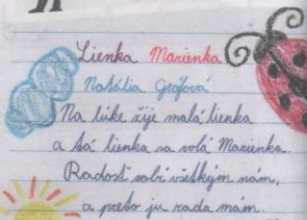 Lienka Marienka
Natália Geofová
Na lúke žije malá lienka
a tá lienka sa volá Marienka.
Radosť robí všetkým nám,
a preto ju rada mám.